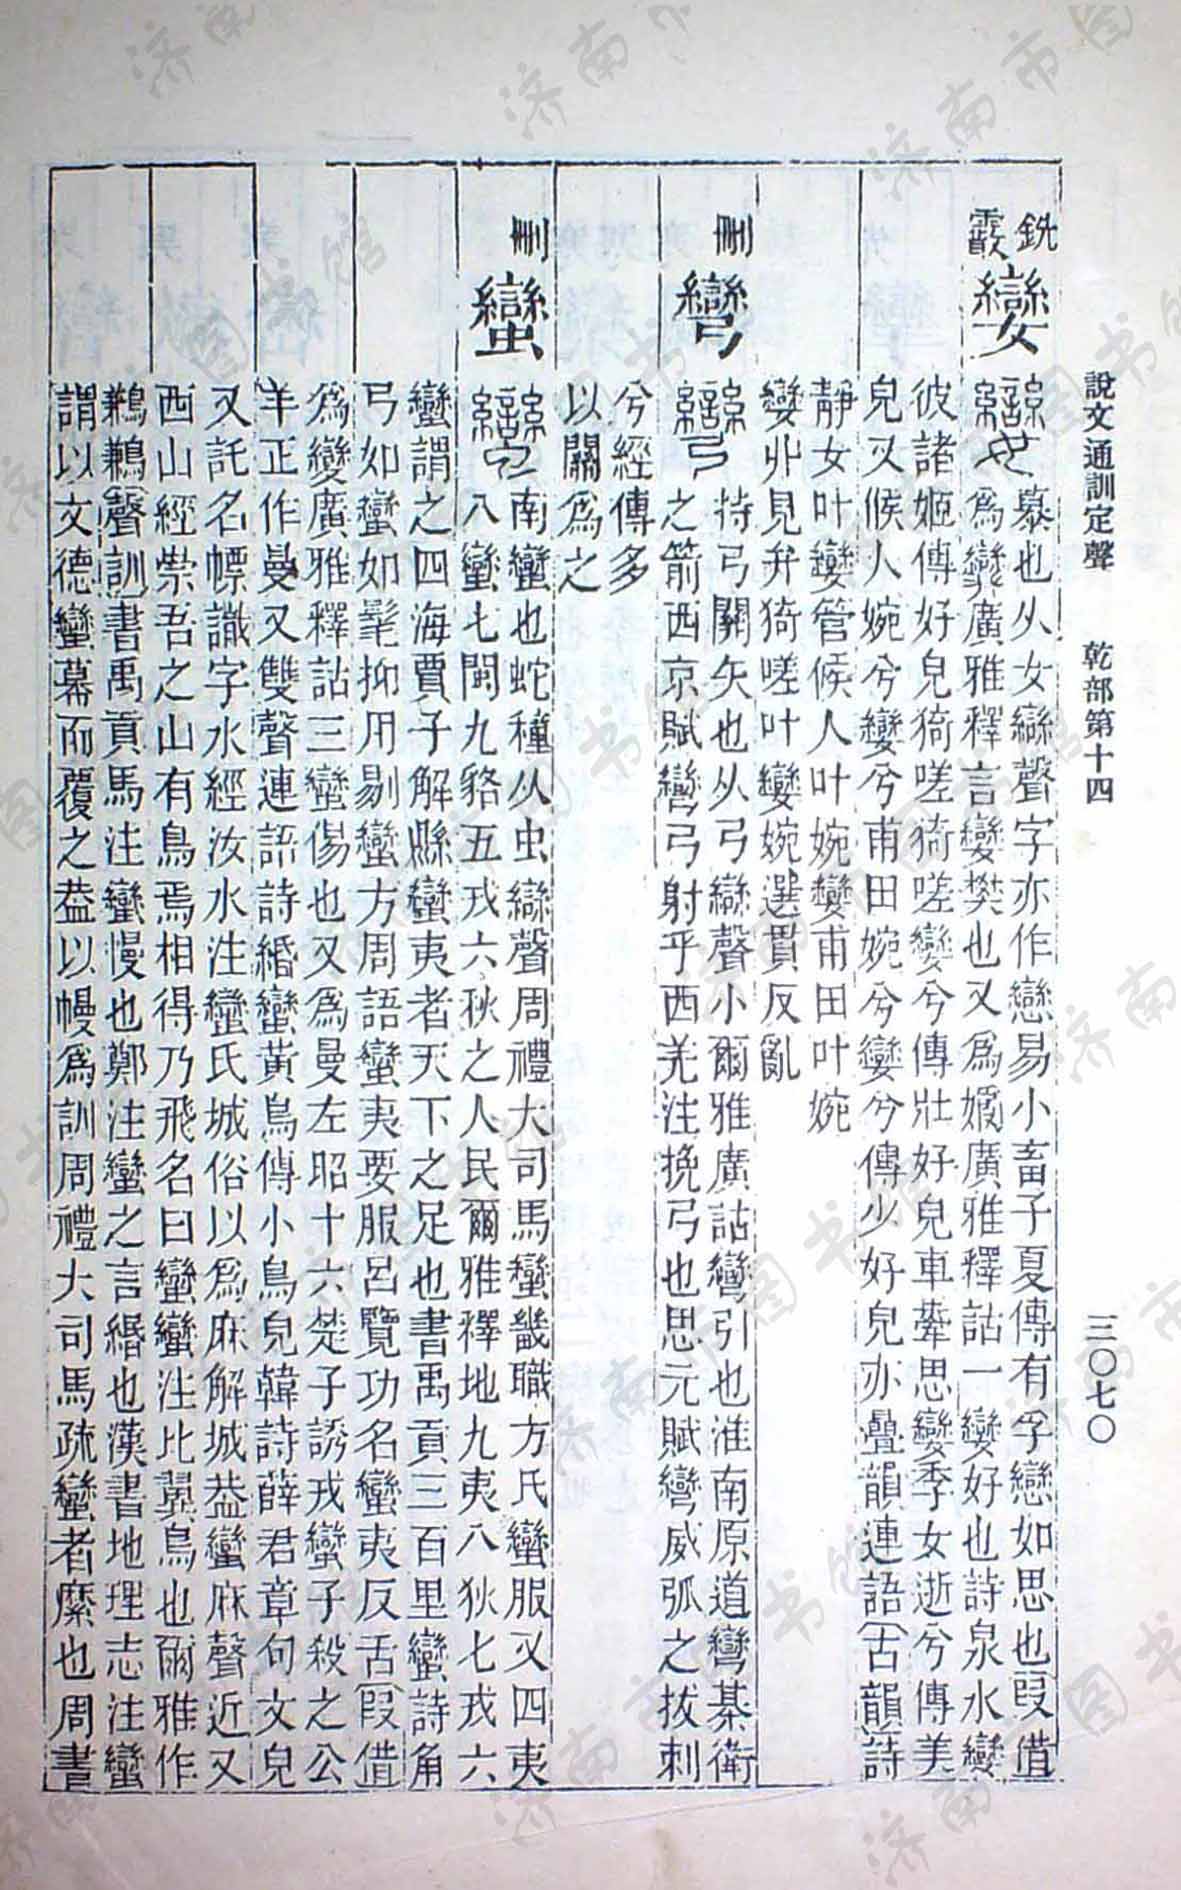 說文通訓定聲 乾部第十四 三〇七〇
銑
霰
孌
慕也从女䜌聲字亦作戀易小畜子夏傳有孚戀如思也叚借
爲㜻廣雅釋言孌㜻也又爲嬽廣雅釋詁一孌好也詩泉水孌
彼諸姬傳好皃猗嗟猗嗟孌兮傳壯好皃車舝思孌季女逝兮傳美
皃又候人婉兮孌兮甫田婉兮孌兮傳少好皃亦疊韻連語古韻詩
靜女叶孌管候人叶婉孌甫田叶婉
孌丱見弁猗嗟叶孌婉選貫反亂
刪
彎
持弓關矢也从弓䜌聲小爾雅廣詁彎引也淮南原道彎棊衛
之箭西京賦彎弓射乎西羌注挽弓也思元賦彎威弧之拔刺
兮經傳多
以關爲之
刪
蠻
南蠻也蛇種从虫䜌聲周禮大司馬蠻畿職方氏蠻服又四夷
八蠻七閩九貉五戎六狄之人民爾雅釋地九夷八狄七戎六
蠻謂之四海賈子解縣蠻夷者天下之足也書禹貢三百里蠻詩角
弓如蠻如髦抑用剔蠻方周語蠻夷要服呂覽功名蠻夷反舌叚借
爲變廣雅釋詁三蠻傷也又爲曼左昭十六楚子誘戎蠻子殺之公
羊正作曼又雙聲連語詩緡蠻黃鳥傳小鳥皃韓詩薛君章句文皃
又託名幖識字水經汝水注蠻氏城俗以爲麻解城葢蠻麻聲近又
西山經崇吾之山有鳥焉相得乃飛名曰蠻蠻注比翼鳥也爾雅作
鶼鶼聲訓書禹貢馬注蠻慢也鄭注蠻之言緡也漢書地理志注蠻
謂以文德蠻幕而覆之葢以幔爲訓周禮大司馬疏蠻者縻也周書